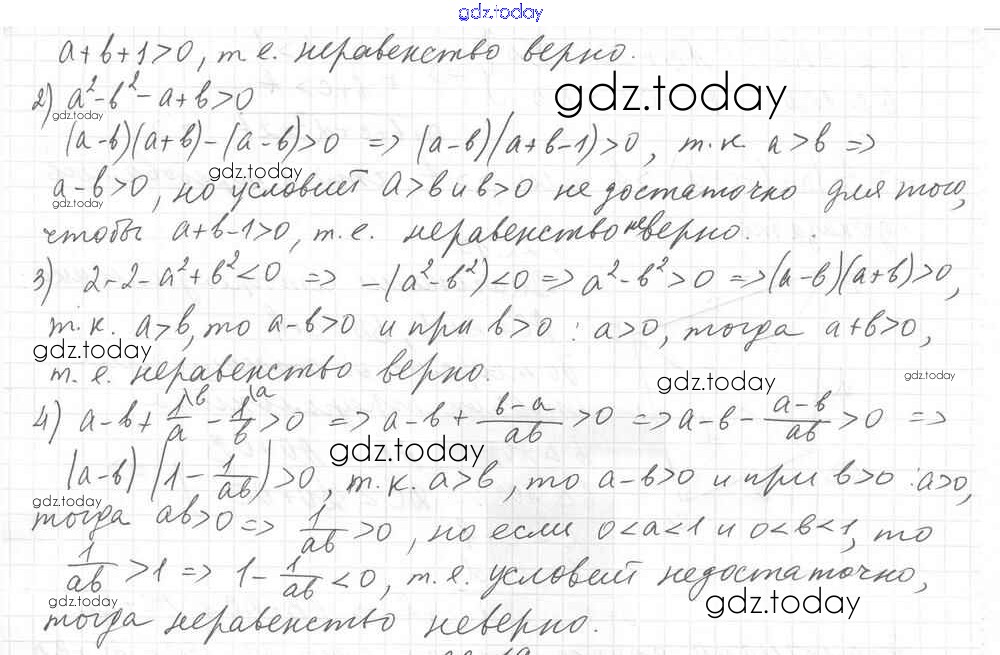 gdz.today
a+b+1>0, т.е. неравенство верно.
2) a²-b²-a+b>0
gdz.today
gdz.today
(a-b)(a+b)-(a-b)>0 => (a-b)(a+b-1)>0, т.к. a>b =>
gdz.today
a-b>0, но условий a>b и b>0 не достаточно для того,
gdz.today
чтобы a+b-1>0, т.е. неравенство не верно.
3) 2-2-a²+b²<0 => -(a²-b²)<0 => a²-b²>0 => (a-b)(a+b)>0,
т.к. a>b, то a-b>0 и при b>0 : a>0, тогда a+b>0,
gdz.today
т.е. неравенство верно.
gdz.today
gdz.today
4) a-b+1/a\b-1/b\a>0 => a-b+(b-a)/ab>0 => a-b-(a-b)/ab>0 =>
gdz.today
(a-b)(1-1/ab)>0, т.к. a>b, то a-b>0 и при b>0 : a>0,
gdz.today
тогда ab>0 => 1/ab>0, но если 0<a<1 и 0<b<1, то
1/ab>1 => 1-1/ab<0, т.е. условий недостаточно,
gdz.today
gdz.today
тогда неравенство неверно.